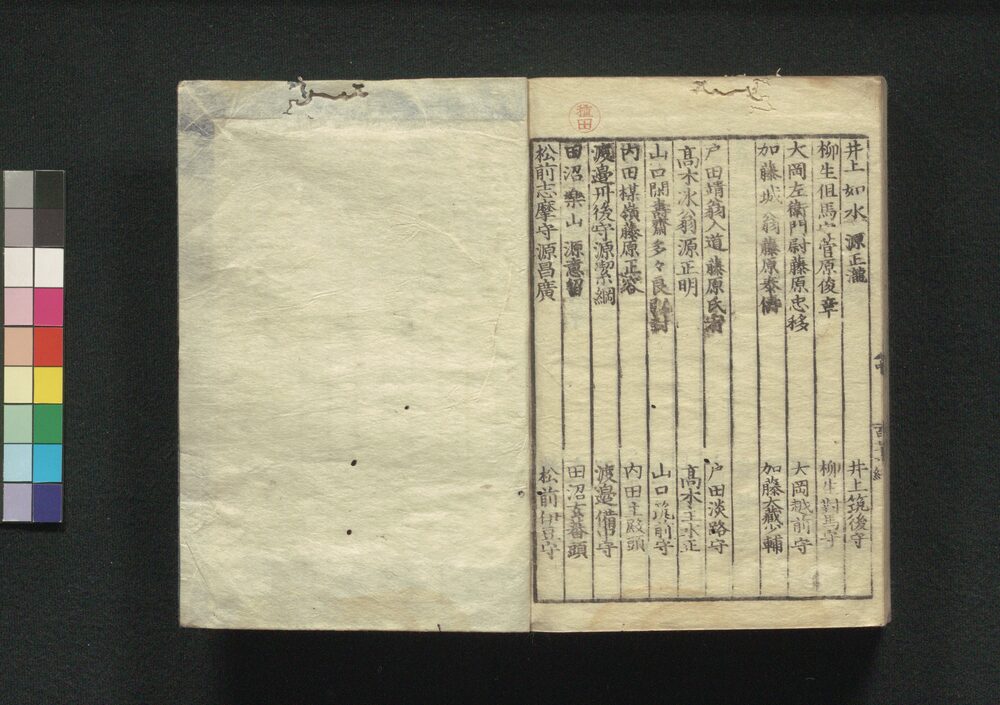 井上如水 源正瀧 井上筑後守
柳生但馬守菅原俊章 柳生對馬守
大岡左衛門尉藤原忠移 大岡越前守
加藤城翁藤原泰儔 加藤大藏少輔
戸田靖翁入道 藤原氏 戸田淡路守
髙木水翁源正明 髙木主水正
山口閑壽齋多々良弘封 山口筑前守
内田楳嶺藤原正容 内田主殿頭
渡邉丹後守源潔綱 渡邉備中守
田沼樂山 源意留 田沼玄蕃頭
松前志摩守源昌廣 松前伊豆守
種田